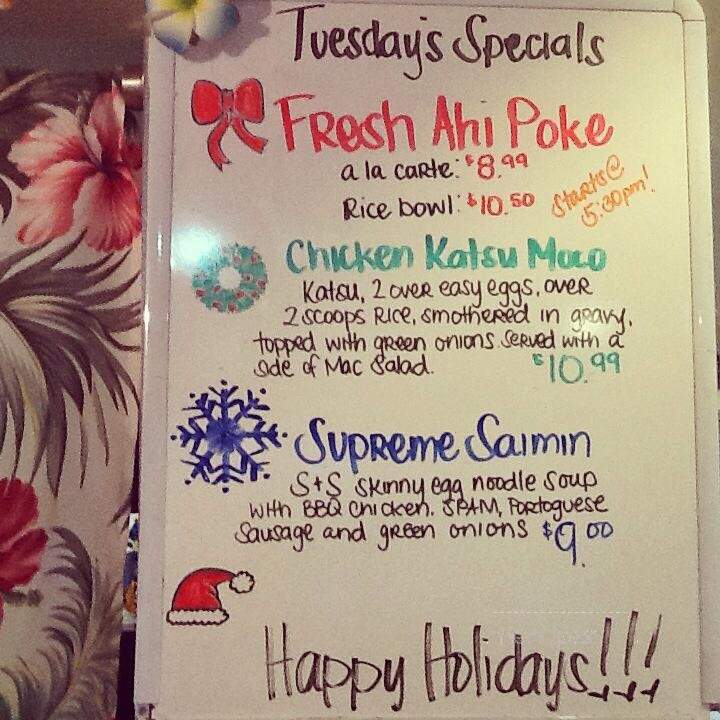 Tuesday's Specials
Fresh Ahi Poke
a la carte: $8.99
Rice bowl: $10.50
Starts @
5:30pm!
Chicken Katsu Moco
Katsu, 2 over easy eggs, over
2 scoops Rice, smothered in gravy,
topped with green onions. Served with a
side of Mac Salad. $10.99
Supreme Saimin
S+S skinny egg noodle soup
with BBQ chicken, SPAM, Portoguese
Sausage and green onions $9.00
Happy Holidays!!!